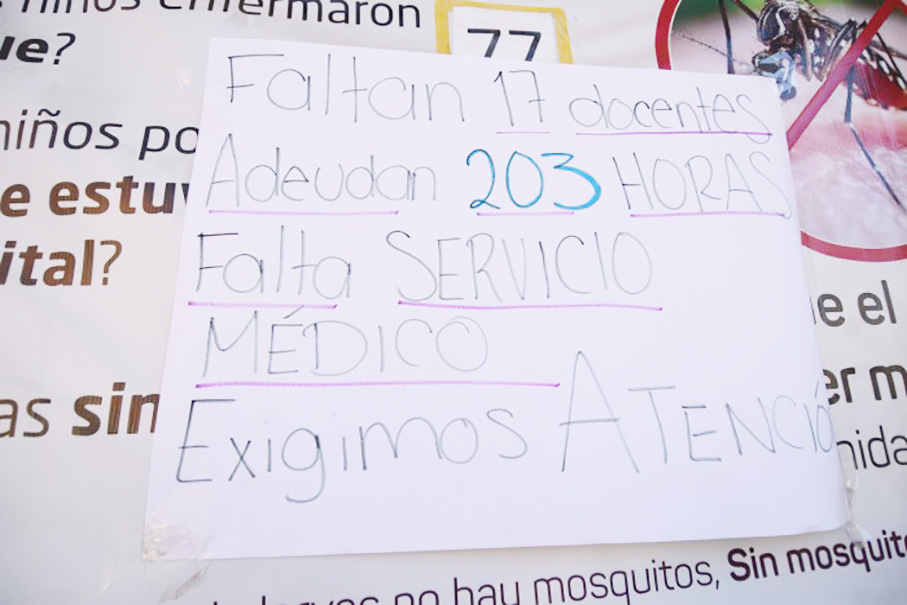 niños enfermaron
ue?
77
niños po
e estu
ital?
as sin
Faltan 17 docentes
Adeudan 203 HORAS
Falta SERVICIO
MÉDICO
Exigimos ATENCIÓ
e el
er m
nida
no hay mosquitos, Sin mosquito